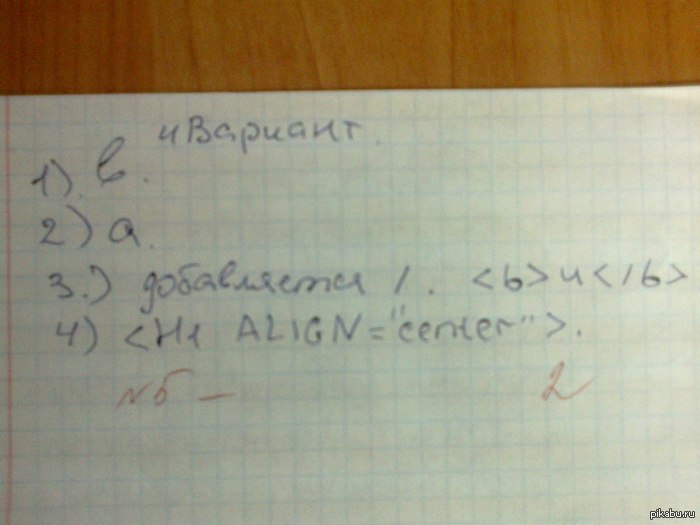 4 Вариант.
1) в.
2) а.
3.) добавляется /. <b> и </b>
4) <H1 ALIGN="center">.
№5 — 2
pikabu.ru